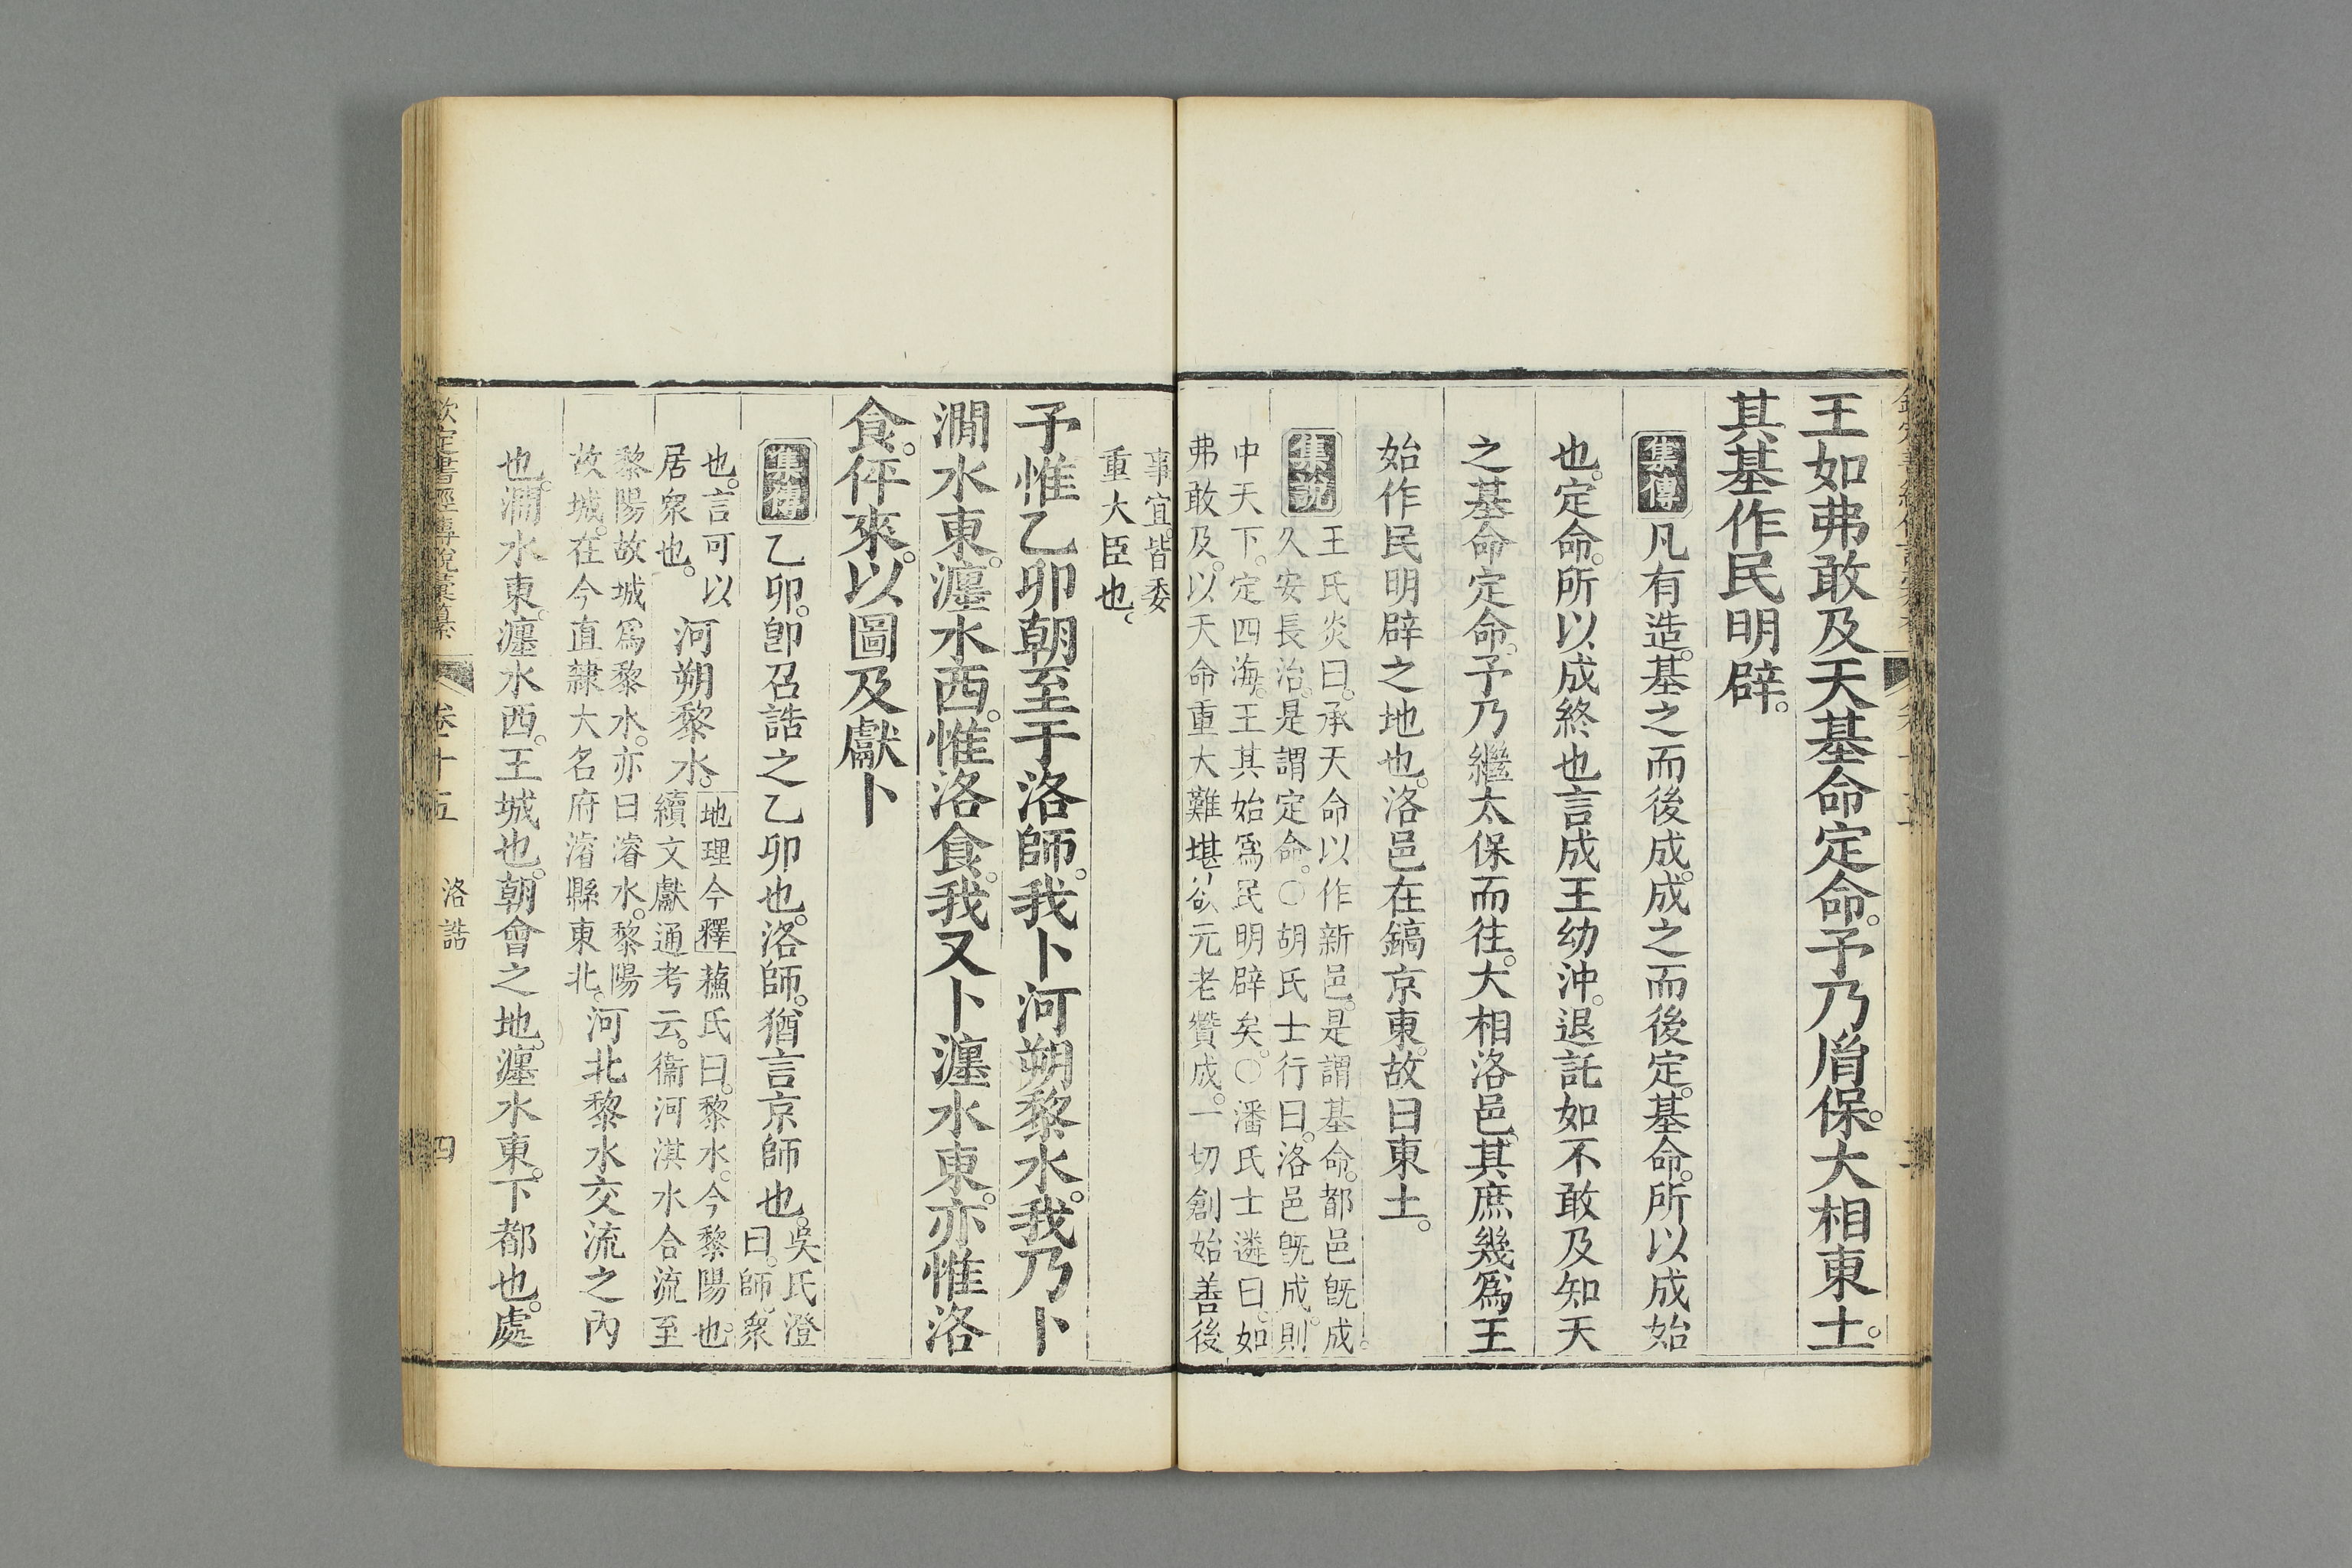 王如弗敢及天基命定命。予乃胤保。大相東土。
其基作民明辟。
集傳
凡有造。基之而後成。成之而後定。基命。所以成始
也。定命。所以成終也言成王幼沖。退託如不敢及知天
之基命定命。予乃繼太保而往。大相洛邑。其庶幾爲王
始作民明辟之地也。洛邑在鎬京東。故曰東土。
集說
王氏炎曰。承天命以作新邑。是謂基命。都邑旣成。
久安長治。是謂定命。○胡氏士行曰。洛邑旣成。則
中天下。定四海。王其始爲民明辟矣。○潘氏士遴曰。如
弗敢及。以天命重大難堪。欲元老贊成。一切創始善後
事宜。皆委
重大臣也。
予惟乙卯朝至于洛師。我卜河朔黎水。我乃卜
澗水東。瀍水西。惟洛食。我又卜瀍水東。亦惟洛
食。伻來。以圖及獻卜
集傳
乙卯。卽召誥之乙卯也。洛師。猶言京師也。
吳氏澄
曰。師衆
也。言可以
居衆也。
河朔黎水。
地理今釋 蘇氏曰。黎水。今黎陽也。
續文獻通考云。衞河淇水合流至
黎陽故城爲黎水。亦曰濬水。黎陽
故城。在今直隸大名府濬縣東北。
河北黎水交流之內
也。澗水東。瀍水西。王城也。朝會之地。瀍水東。下都也。處
欽定書經傳說彙纂 卷十五 洛誥 四